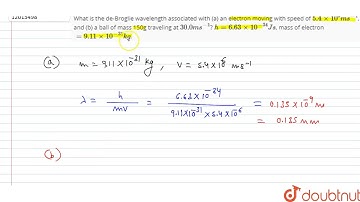 12015498
What is the de-Broglie wavelength associated with (a) an electron moving with speed of 5.4 × 10⁶ms⁻¹
and (b) a ball of mass 150g traveling at 30.0ms⁻¹? h = 6.63 × 10⁻³⁴Js, mass of electron
= 9.11 × 10⁻³¹kg
(a) m = 9.11 × 10⁻³¹ kg , v = 5.4 × 10⁶ ms⁻¹
λ = h/mv = 6.63 × 10⁻³⁴ / 9.11 × 10⁻³¹ × 5.4 × 10⁶ = 0.135 × 10⁻⁹ m
= 0.135 nm
(b)
doubtnut